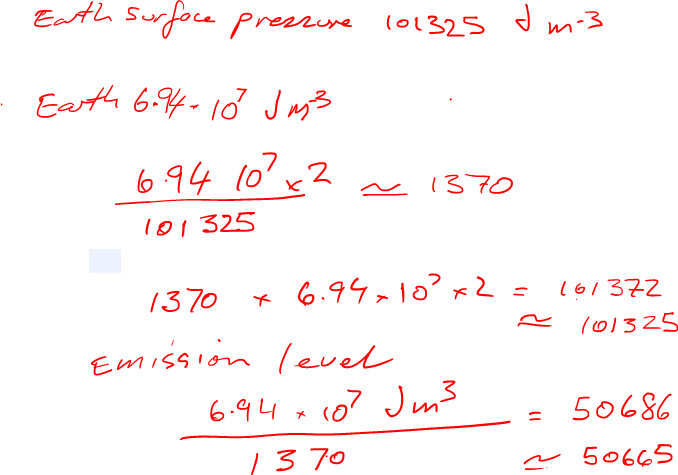 Earth surface pressure 101325 J m-3
Earth 6.94 × 10⁷ J m⁻³
6.94 10⁷ × 2 ≃ 1370
101325
1370 × 6.94 × 10⁷ × 2 = 101372
≃ 101325
Emission level
6.94 × 10⁷ J m³ = 50686
1370 ≃ 50665